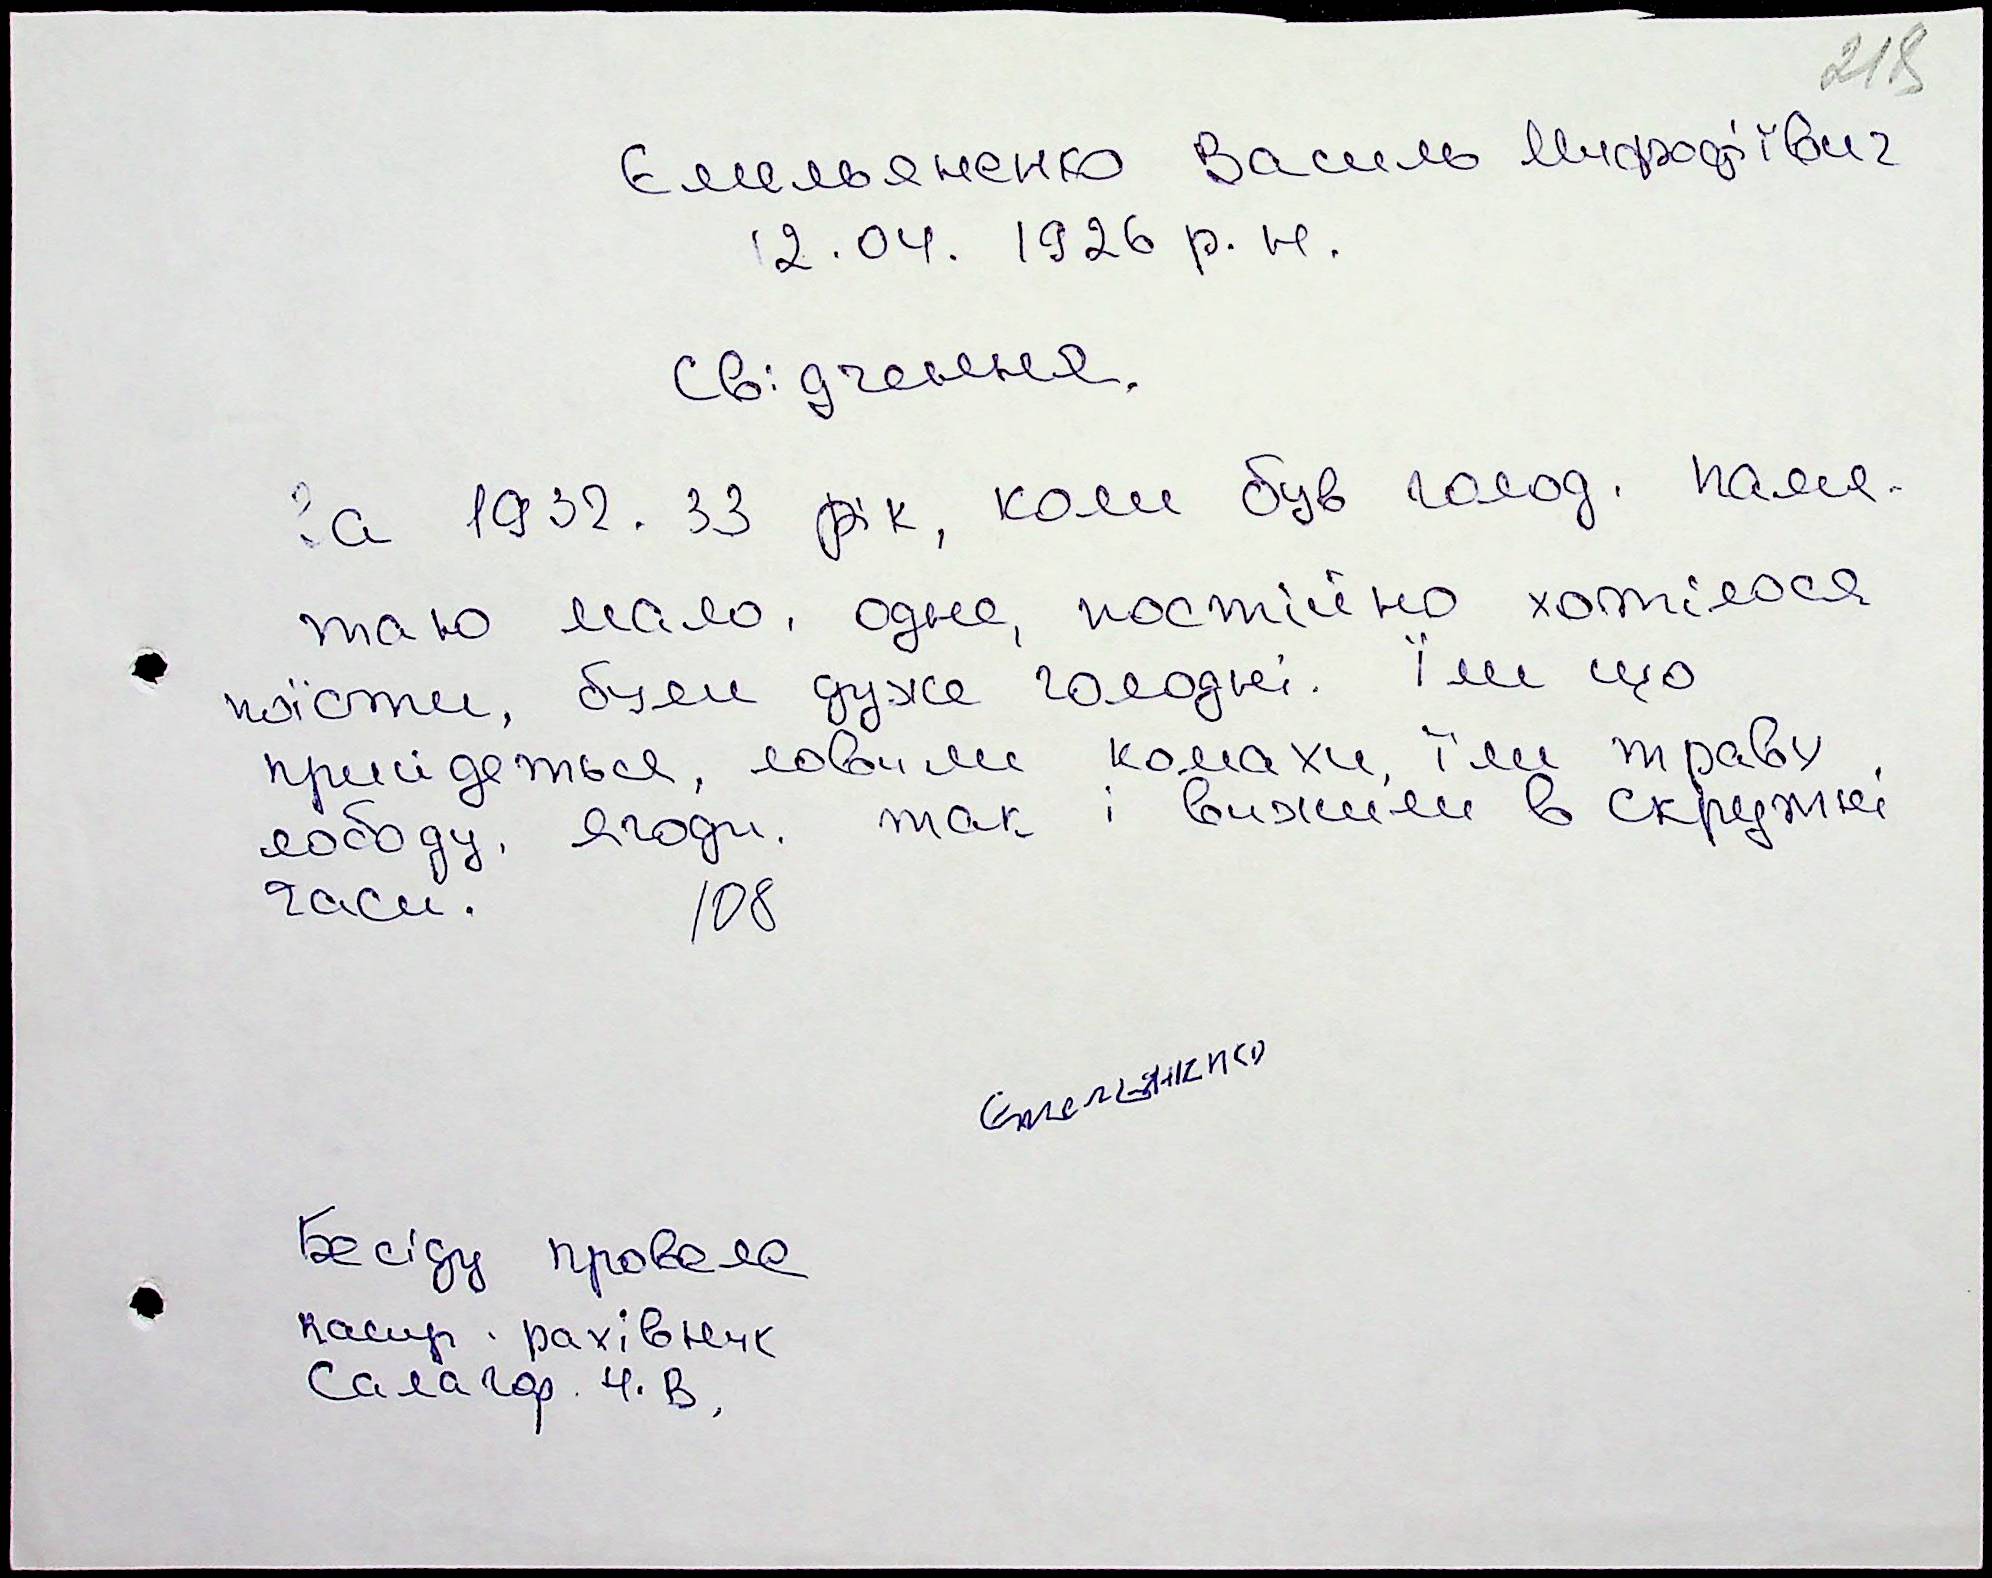 218
Ємильяненко Василь Мифодіївич
12.04. 1926 р. н.
Свідчення.
За 1932. 33 рік, коли був голод. памя-
таю мало. одне, постійно хотілося
поїсти, були дуже голодні. Їли що
прийдеться, ловили комахи, їли траву,
лободу, ягоди. так і вижили в скрутні
часи. 108
Емельяненко
Бесіду провела
касир. рахівник
Салагор. Н. В.